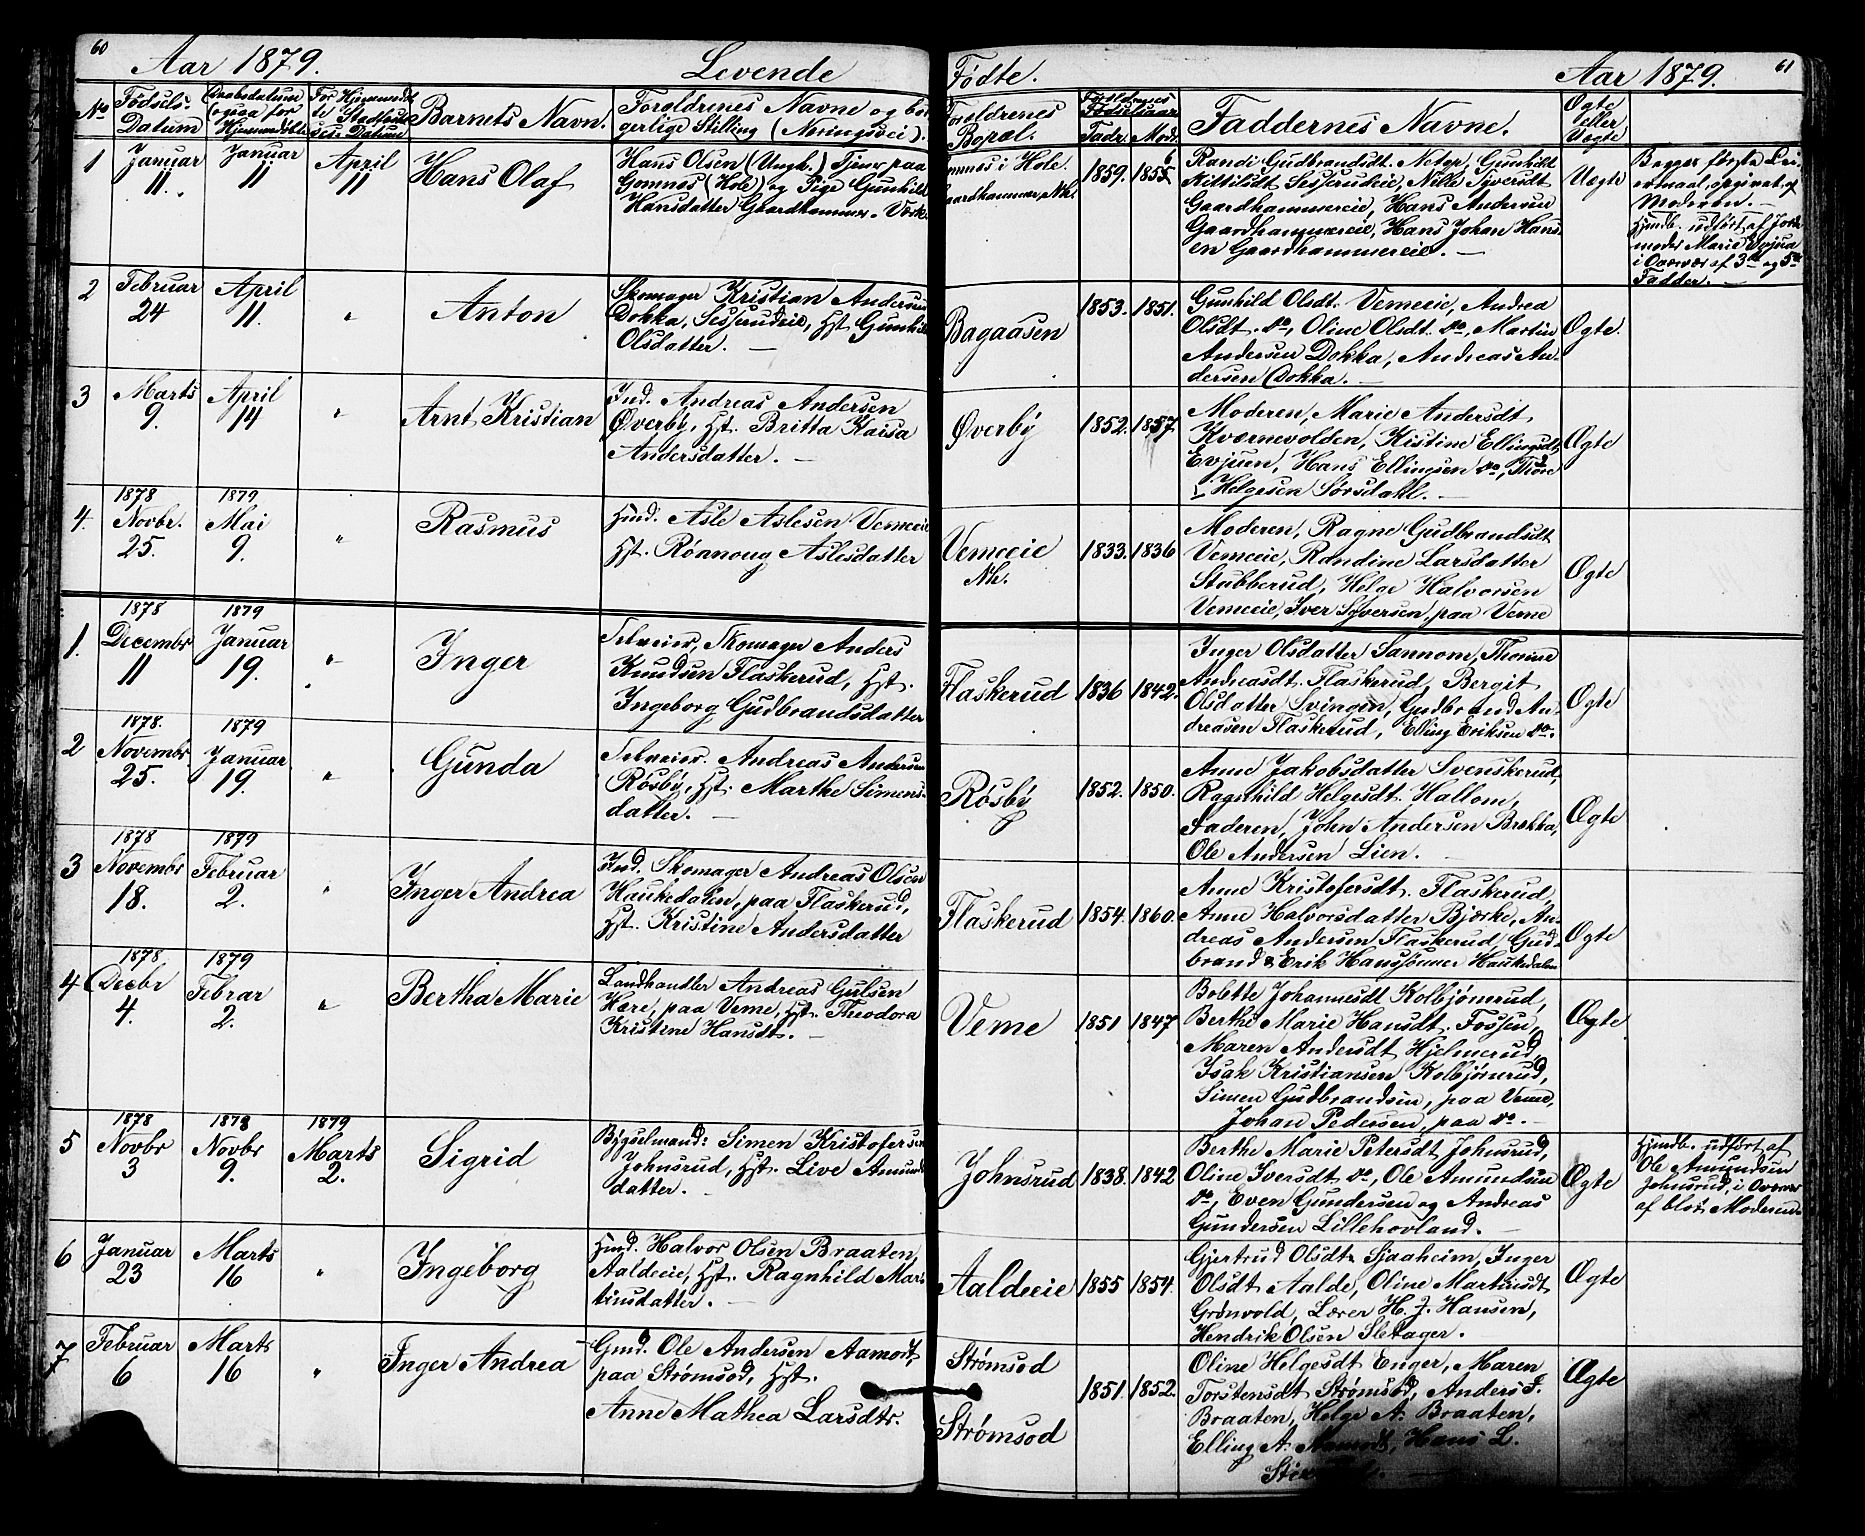 60
Aar 1879.
Levende
No
Fødsels-
Datum
Daabsdatum
(ogsaa for
Hjemmedøbt.
For Hjemmedøb-
te Stadfæstel-
ses Datum
Barnets Navn.
Forældrenes Navne og bor-
gerlige Stilling (Næringsvei).
1
Januar
11.
Januar
11
April
11
Hans Olaf
Hans Olsen (Ungk.) Tjener paa
Gomnes (Hole) og Pige Gunhild
Hansdatter Gaardhammer. Vœsk.
2
Februar
24
April
11.
"
Anton
Skomager Kristian Andersen
Dokka, Sesserudeie, Hst Gunhild
Olsdatter. —
3
Marts
9.
April
14
"
Arnt Kristian
Ind. Andreas Andersen
Øverby, Hst. Britta Kaisa
Andersdatter. —
4.
1878
Novbr.
25.
1879
Mai
9.
"
Rasmus
Hmd. Asle Aslesen Vemeeie
Hst. Røanoug Aslesdatter
1.
1878
Decembr
11
1879
Januar
19.
"
Inger
Selveier, Skomager Anders
Knudsen Flaskerud, Hst.
Ingeborg Gudbrandsdatter
2
1878.
Novembr
25.
1879
Januar
19.
"
Gunda
Selveier. Andreas Andersen
Røsby, Hst. Marthe Simens-
datter. —
3
1878
Novembr
18.
1879
Februar
2.
"
Inger Andrea
Ind. Skomager Andreas Olsen
Haukedalen, paa Flaskerud,
Hst. Kristine Andersdatter
4
1878.
Decbr
4.
1879
Febrar
2.
"
Bertha Marie
Landhandler Andreas Gulsen
Hære, paa Veme, Hst. Theodora
Kristine Hansdt. —
5
1878
Novbr
3
1878
Novbr
9.
1879
Marts
2.
Sigrid
Bygselmand: Simen Kristofersen
Johnsrud, Hst. Live Amunds
datter. —
6
Januar
23
Marts
16
"
Ingeborg
Hmd. Halvor Olsen Braaten,
Aaldeeie, Hst. Ragnhild Mar-
tinsdatter. —
7
Februar
6
Marts
16
"
Inger Andrea
Gmd. Ole Andersen Aamodt,
paa Strømsod, Hst.
Anne Mathea Larsdtr.
Fødte.
Aar 1879.
61
Forældrenes
Bopæl.
Forældrenes
Fødselsaar
Fadr.
Mod.
Faddernes Navne.
Ægte
eller
Uægte
Gomnes i Hole.
Gaardhammer, Nh.
1859.
1855
6
Randi Gudbrandsdt. Neter, Gunhild
Kittilsdt Sesserudeie, Nille Syversdt
Gaardhammereie, Hans Andersen
Gaardhammereie, Hans Johan Hans-
en Gaardhammereie. —
Uægte
Begges første Lei-
ermaal, opgivet af
Moderen. —
Hjmdb. udført af Jorde-
moder Marie Evjua
i Overvær af 3die og 5te
Fadder. —
Bagaasen
1853.
1851.
Gunhild Olsdt. Vemeeie, Andrea
Olsdt. do, Oline Olsdt. do, Martin
Andersen Dokka, Andreas An-
dersen Dokka. —
Ægte.
Øverby
1852.
1857.
Moderen, Marie Andersdt
Kværnevolden, Kistine Ellingsdt,
Evjuen, Hans Ellingsen do, Thore
Helgesen Sørsdahl. —
Ægte
Vemeeie
Nh.
1833.
1836
Moderen, Ragne Gudbrandsdt
Vemeeie, Randine Larsdatter
Stubberud, Helge Halvorsen
Vemeeie, Iver Syversen, paa Veme
Ægte
Flaskerud
1836
1842.
Inger Olsdatter Sannom, Thorine
Andreasdt. Flaskerud, Bergit
Olsdatter Svingen, Gudbrand An-
dreasen Flaskerud, Elling Eriksen do.
Ægte
Røsby
1852.
1850.
Anne Jakobsdatter Svenskerud,
Ragnhild Helgesdt. Hallom,
Faderen, John Andersen Brækka,
Ole Andersen Lien.
Ægte
Flaskerud
1854.
1860.
Anne Kristofersdt. Flaskerud,
Anne Halvorsdatter Bjørke, An-
dreas Andersen Flaskerud, Gud-
brand & Erik Hanssønner Haukedalen
Ægte
Veme
1851
1847
Bolette Johannesdt Kolbjørnrud,
Berthe Marie Hansdt. Fossen,
Maren Andersdt Hjelmerud,
Isak Kristiansen Kolbjørnrud,
Simen Gudbrandsen, paa Veme,
Johan Pedersen, paa do. —
Ægte
Johnsrud
1838.
1842
Berthe Marie Petersdt Johnsrud,
Oline Iversdt do, Ole Amundsen
do, Even Gundersen og Andreas
Gundersen Lillehovland. —
Ægte
Hjmdb. udført af
Ole Amundsen
Johnsrud, i Overvær
af blot Moderen.
Aaldeeie
1855
1854.
Gjertrud Olsdt. Sjaaheim, Inger
Olsdt Aalde, Oline Martinsdt
Grønvold, Lærer H. J. Hansen,
Hendrik Olsen Sletager. —
Ægte
Strømsod
Strømsod
1851.
1852.
Oline Helgesdt Enger, Maren
Torstensdt Strømsod, Anders J.
Braaten, Helge A. Braaten,
Elling A. Aamodt, Hans L.
Ægte